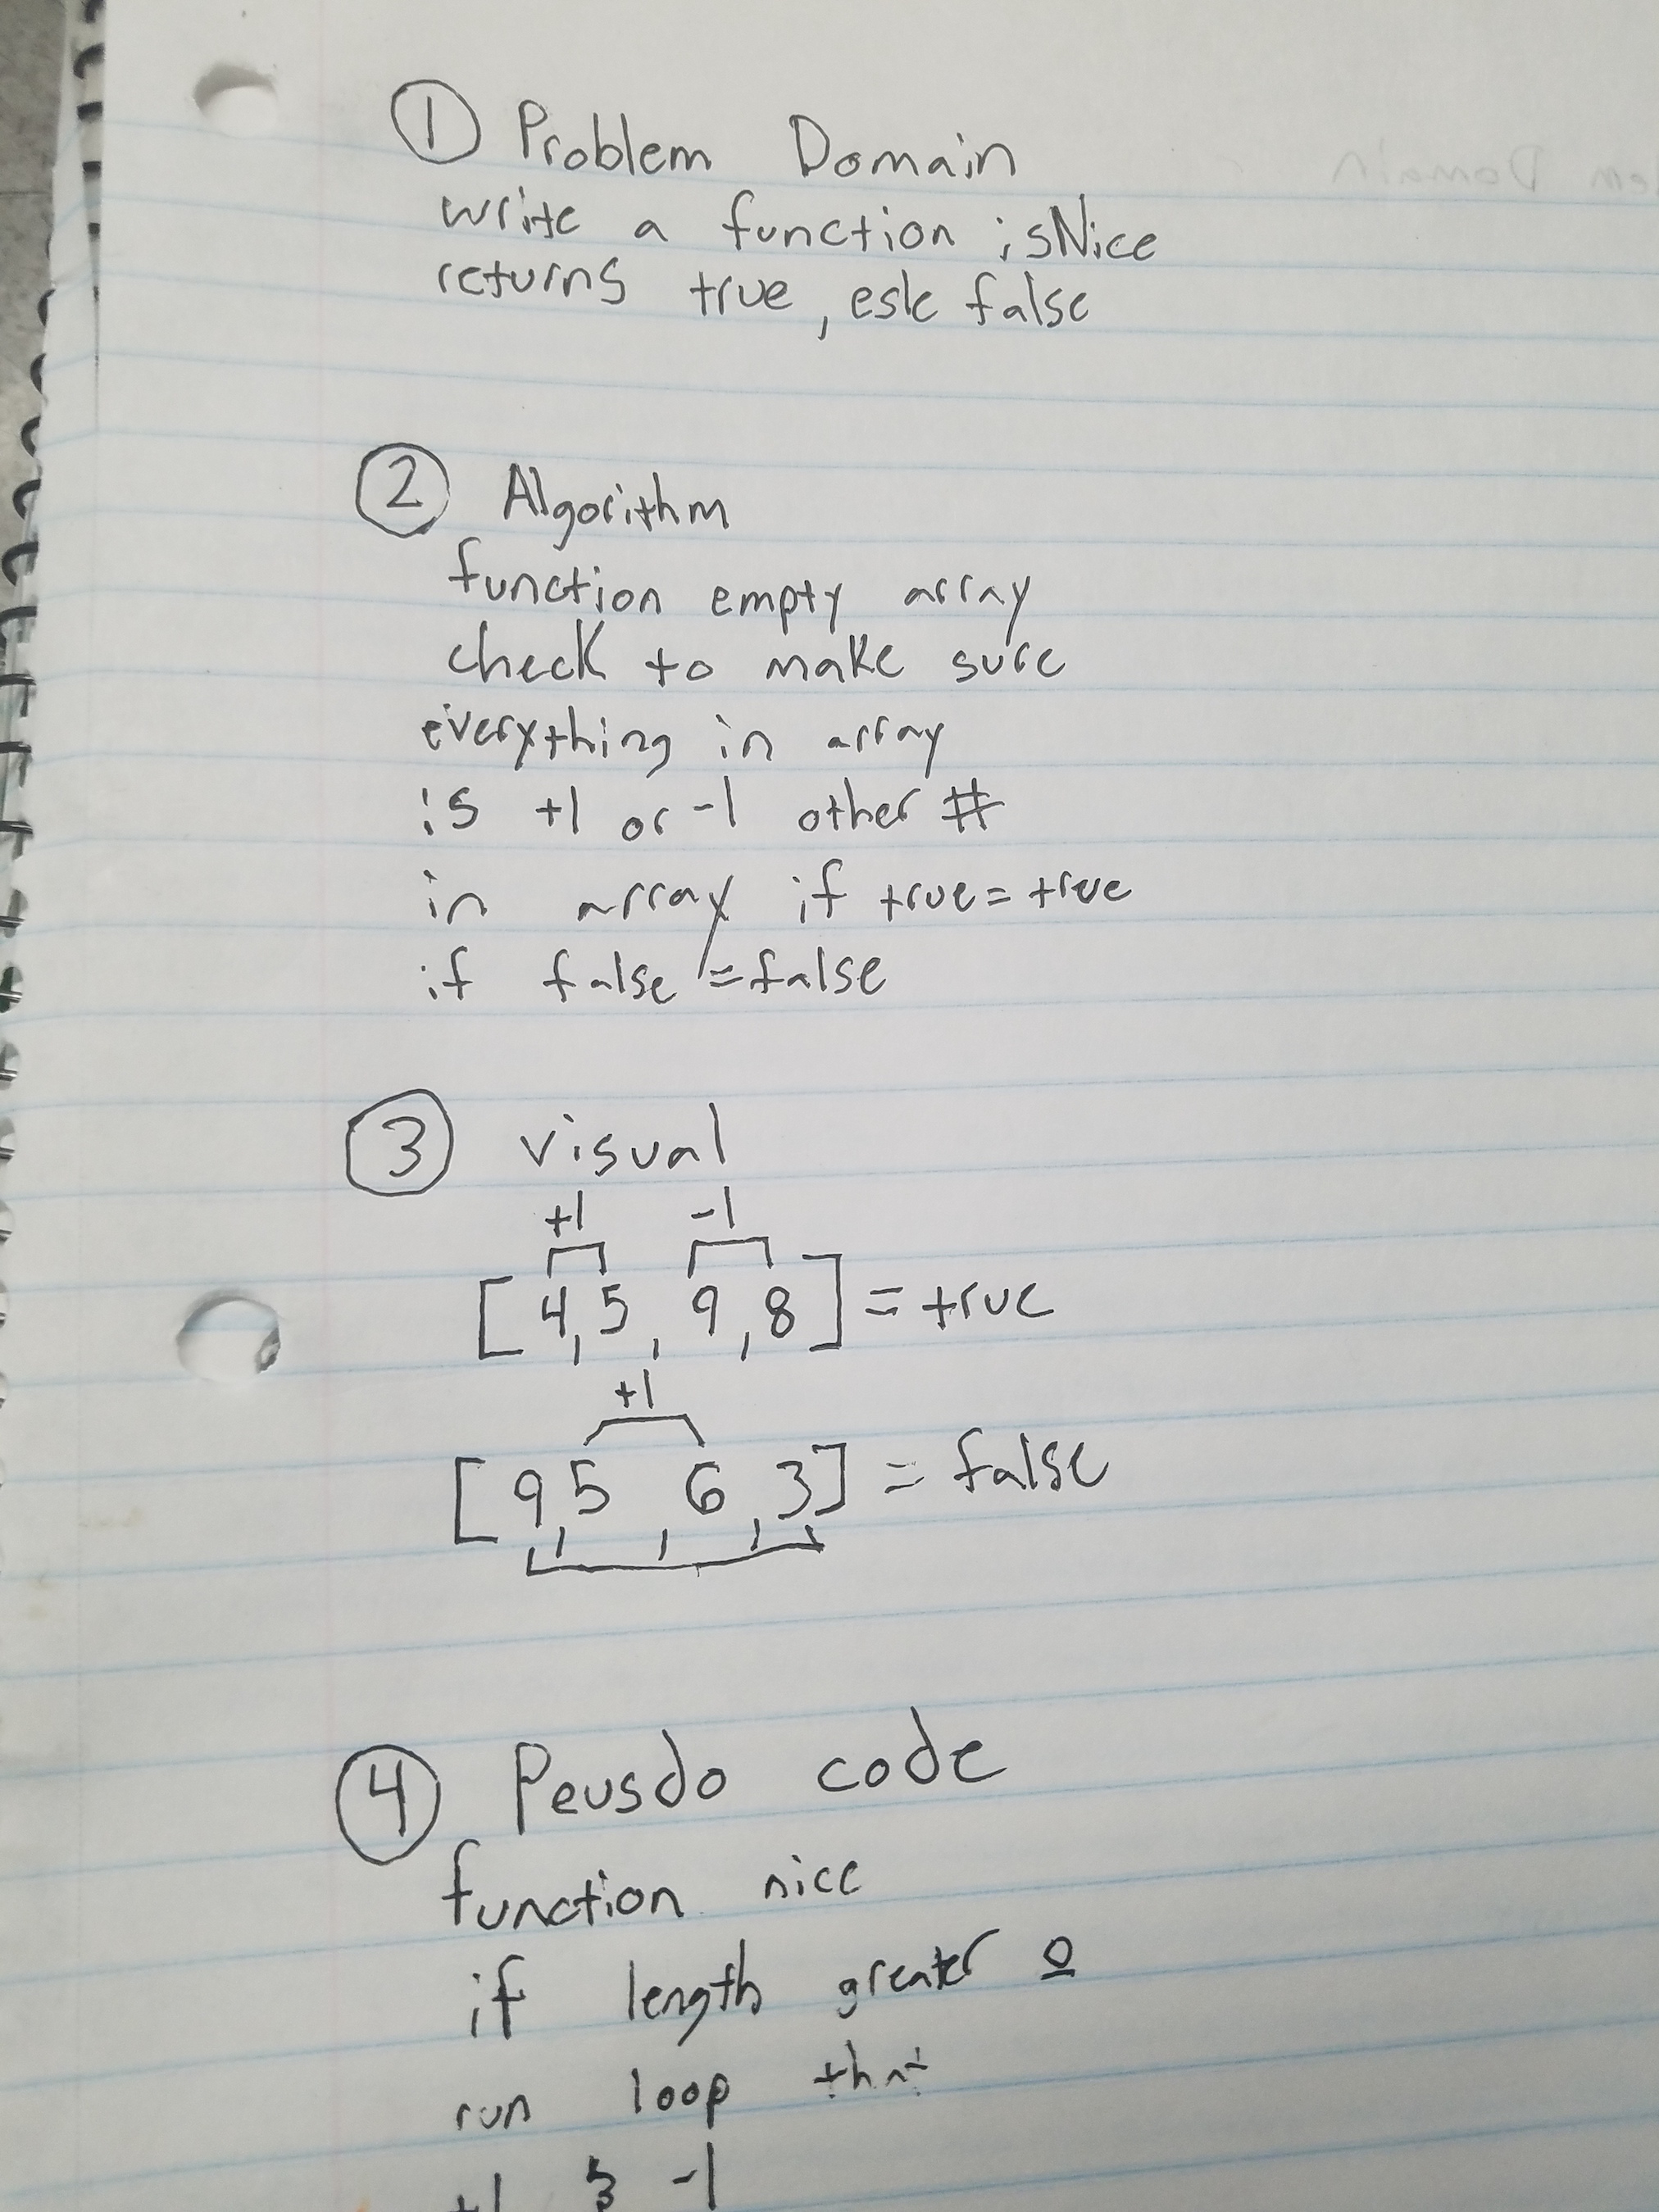 ① Problem Domain
write a function isNice
returns true, esle false
② Algorithm
function empty array
check to make sure
everything in array
is +1 or -1 other #
in array if true = true
if false = false
③ visual
+1 -1
[4,5, 9,8] = true
+1
[9,5, 6,3] = false
④ Peusdo code
function nice
if length greater 0
run loop that
+1 -1